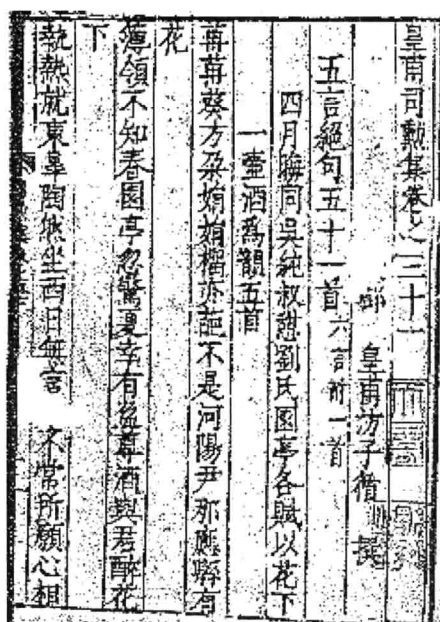 皇甫司勳集卷之三十一
皇甫汸子循撰
五言絕句五十一首六言附一首
四月晦同吳純叔劉氏園亭各賦以花下
一壺酒爲韻五首
苒苒葵方朵娟娟榴亦葩不是河陽尹那應縣有
花
簿領不知春園亭忽驚夏幸有尊酒與君醉花
下
執熱就東皋陶然坐西日無言不常所願心相